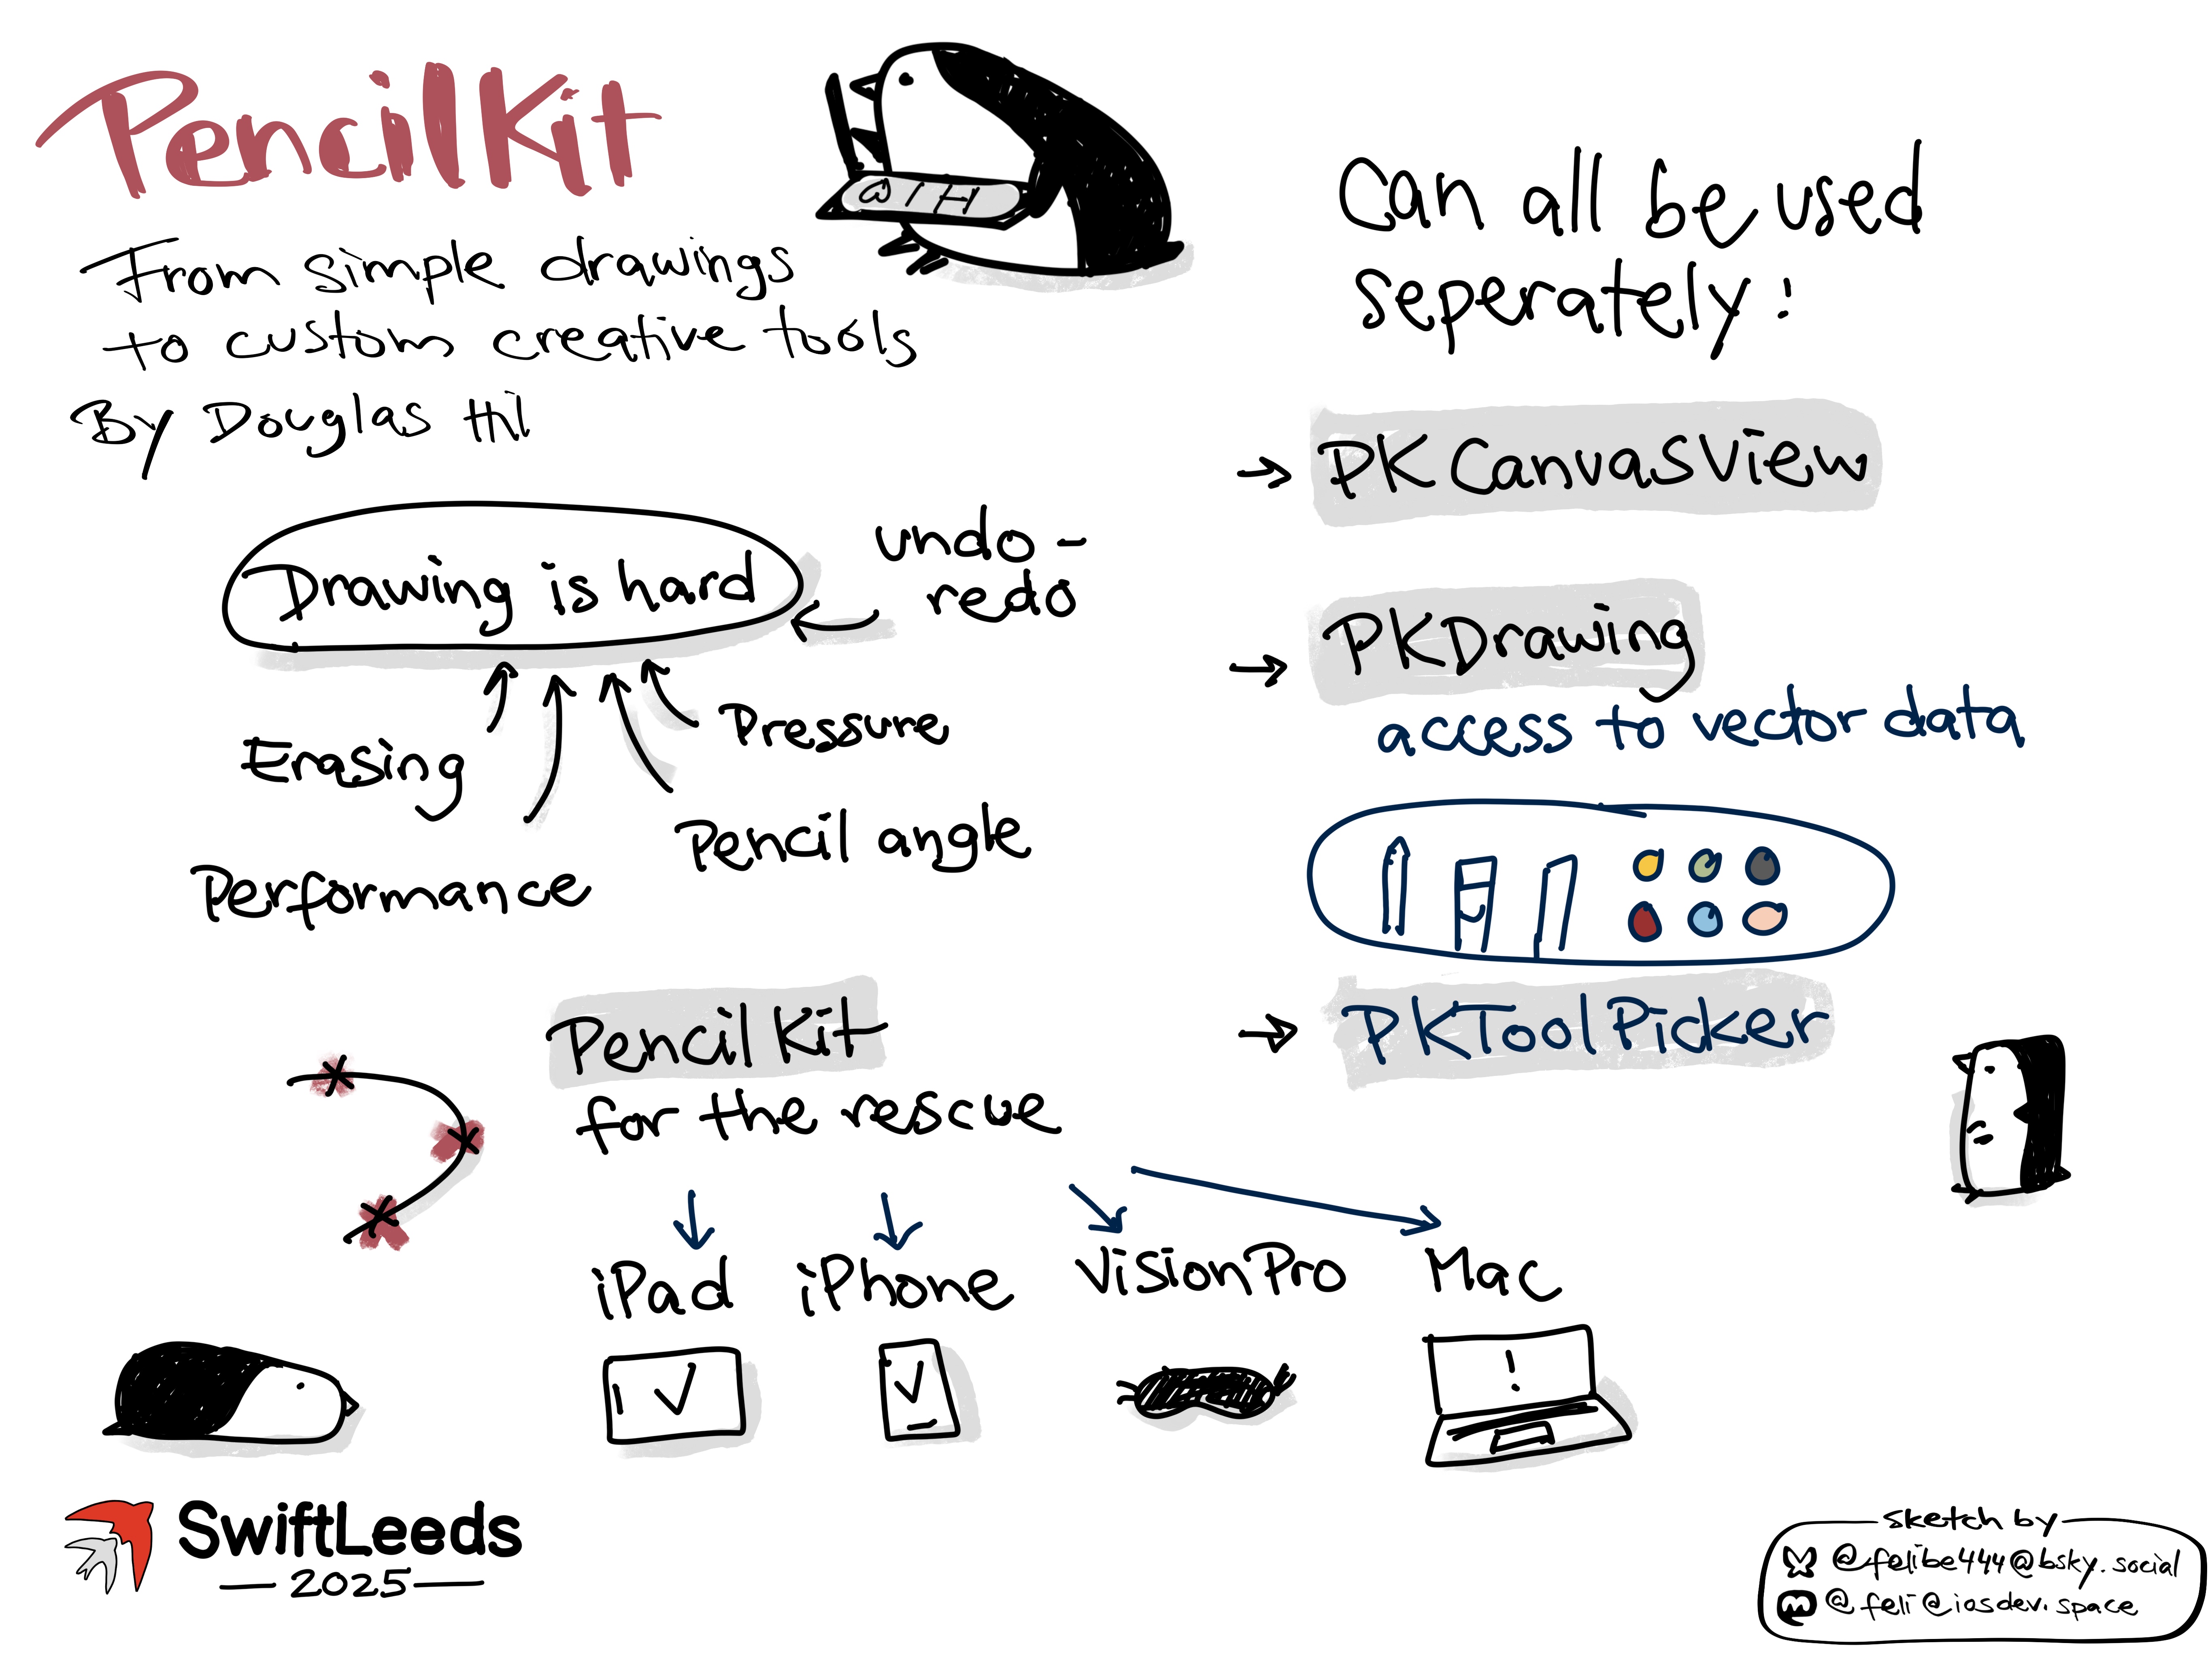 PencilKit
From simple drawings
to custom creative tools
By Douglas Hil
Drawing is hard
undo -
redo
Erasing
Pressure
Pencil angle
Performance
PencilKit
for the rescue
iPad
iPhone
VisionPro
Mac
!
Can all be used
seperately:
→ PKCanvasView
→ PKDrawing
access to vector data
→ PKToolPicker
SwiftLeeds
2025
sketch by
@felibe444@bsky.social
@feli@iosdev.space